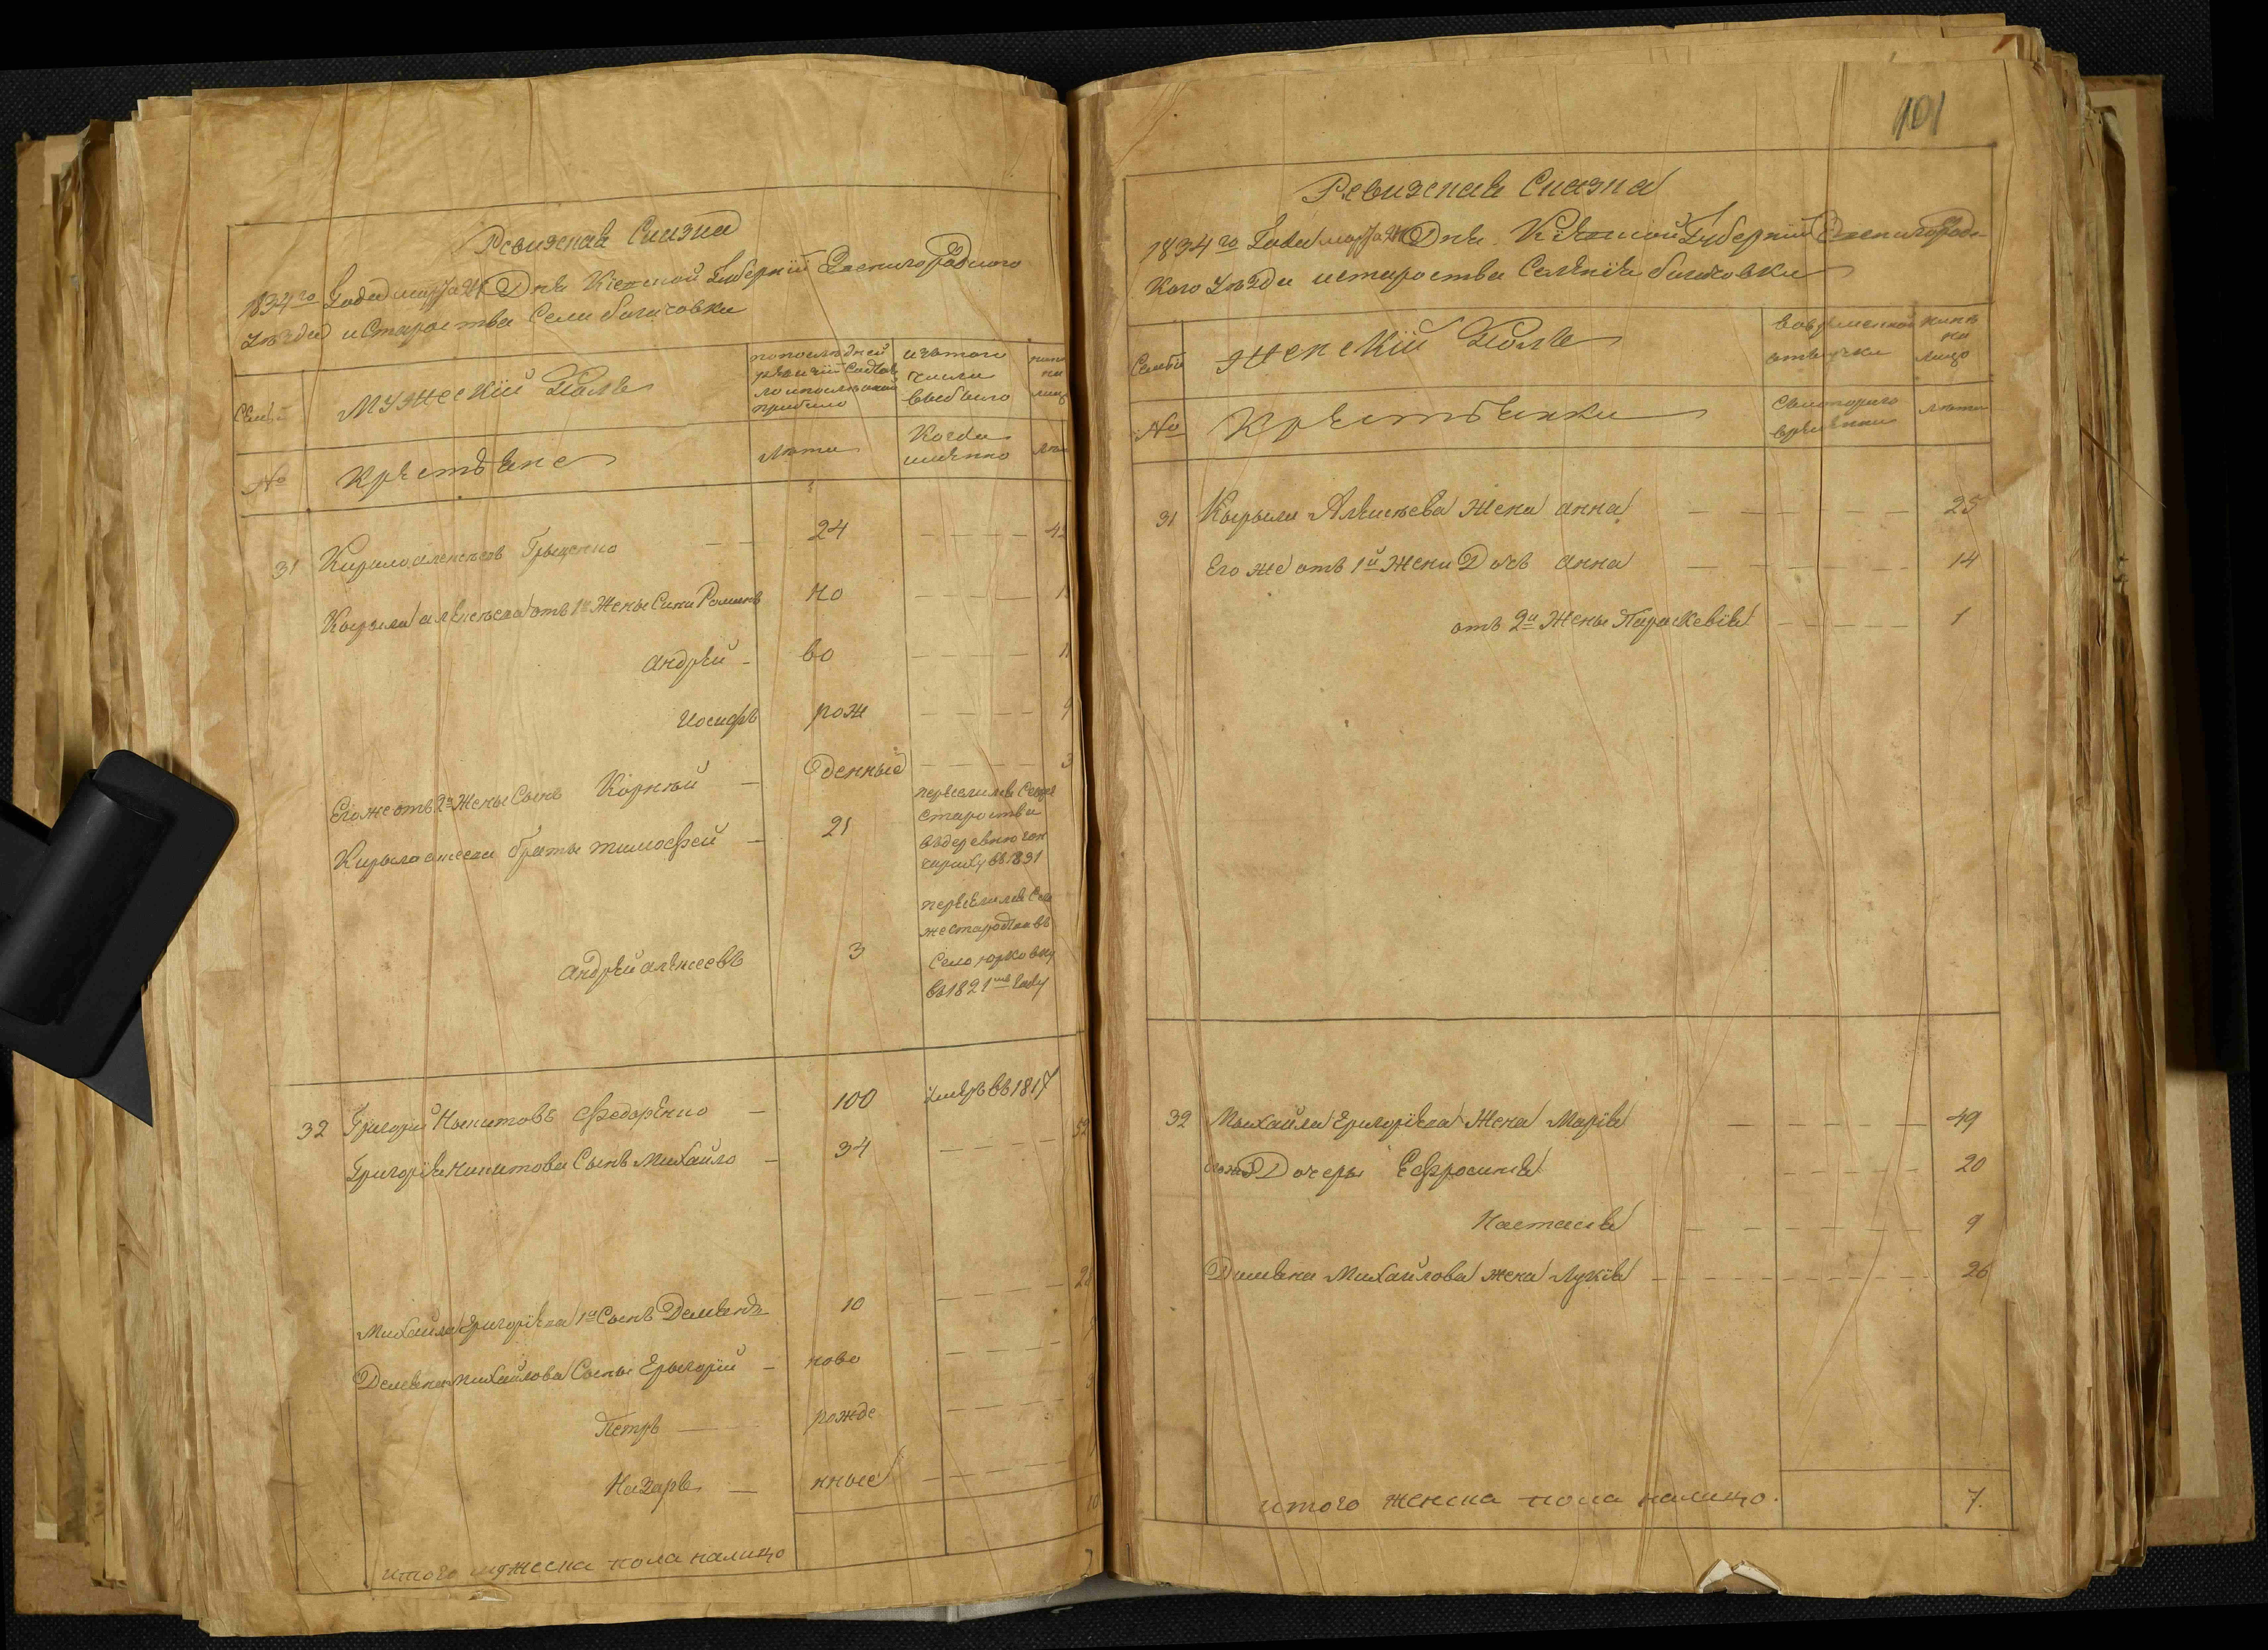 Ревизская Сказка
1834го Года марта 21 Дня Кіевской Губерніи Звенигородского
уѣзда и Староства Села багачовки
Семьи
мужескій Полъ
по последней ревизіи Состояло и после оной прибыло
изтого числа выбыло
ныне на лицо
№
Крестьяне
Лета
Когда именно
Лета
31 Кирило алексѣев Грыценко — 24 — 42
Кирила алексѣева от 1й Жены Сини Романъ но
андрей — во
Иосифъ рож
Его же отъ 2й Жены Сынъ Корнѣй — денные 3
Кирыла алексеева братья тимофей — 21
переселился Сегоже
староства
въ деревню гон
чариху въ 1831
андрей алексеевъ 3
переселился Сего
же староства въ
Село юрковку
въ 1821мъ году
32 Григорій Никитовъ Федоренко — 100 умеръ въ 1817
Григорія Никитова Сынъ Михайло — 34 — 52
Михайла Григорієва 1й Сынъ Демьянъ 10 — 28
Демьяна Михайлова Сыны Григорій — ново
Петръ — рожде
Назаръ — нные
итого мужеска пола налицо
101
Ревизская Сказка
1834го Года марта 21 Дня Кіевской Губерніи Звенигородс-
кого уѣзда и староства Селенія багачовки
Семьи
женскій Полъ
во временной отлучке
ныне на лицо
№
Крестьянки
Скоторого времени
Лета
31 Кирыла Алексѣева Жена анна — 25
Его же отъ 1й Жени Дочъ анна — 14
отъ 2й Жены Параскевія — 1
32 Михайла Григорієва Жена Марія — 49
его же Дочеры Ефросинія — 20
Настасія — 9
Демьяна Михайлова жена Лукія — 26
итого женска пола налицо. 7.